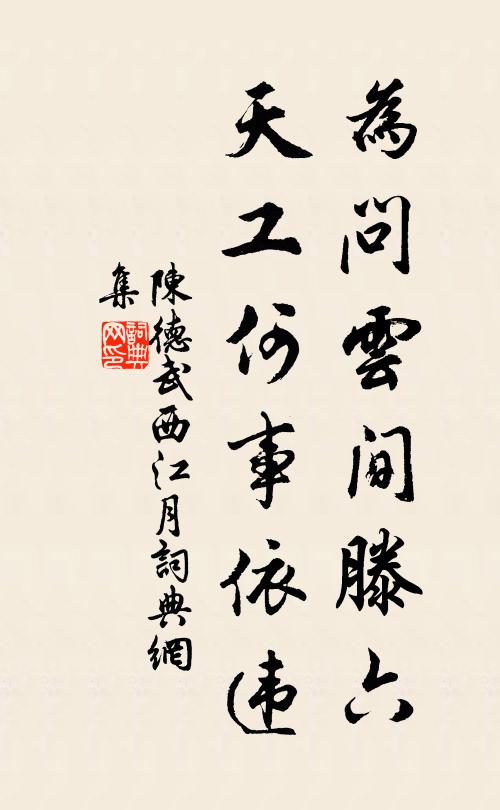 為問雲間滕六
天工何事依违
陳德武西江月詞典網
集
詞典网印